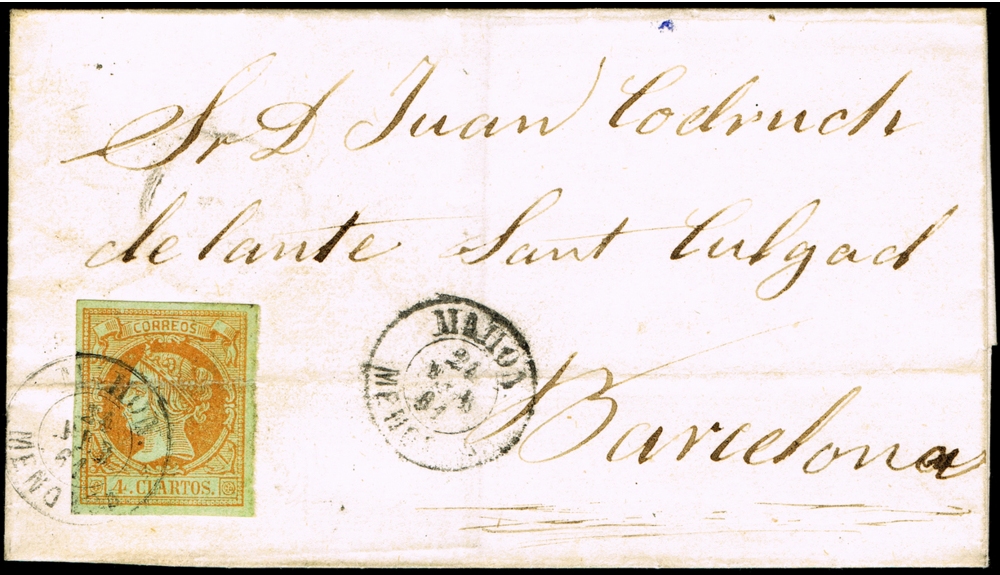 Sr D Juan Codruch
delante Sant Culgad
Barcelona
CORREOS
4 CUARTOS.
MAHON
24
MENORCA
MAHON.